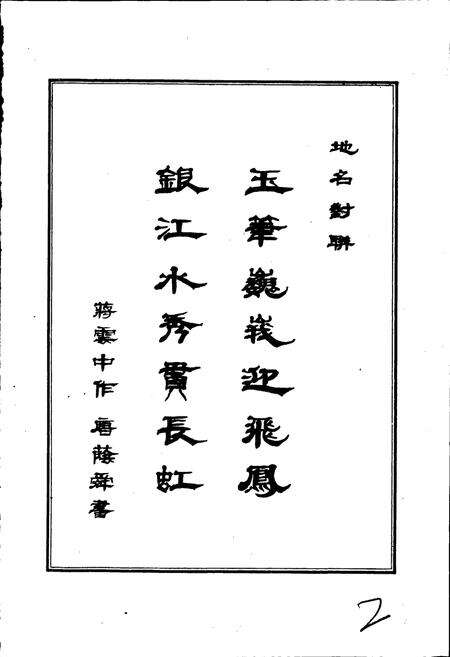 地名對聯
玉華巍峩迎飛鳳
銀江水秀貫長虹
蔣雲中作 唐蔭舜書
2